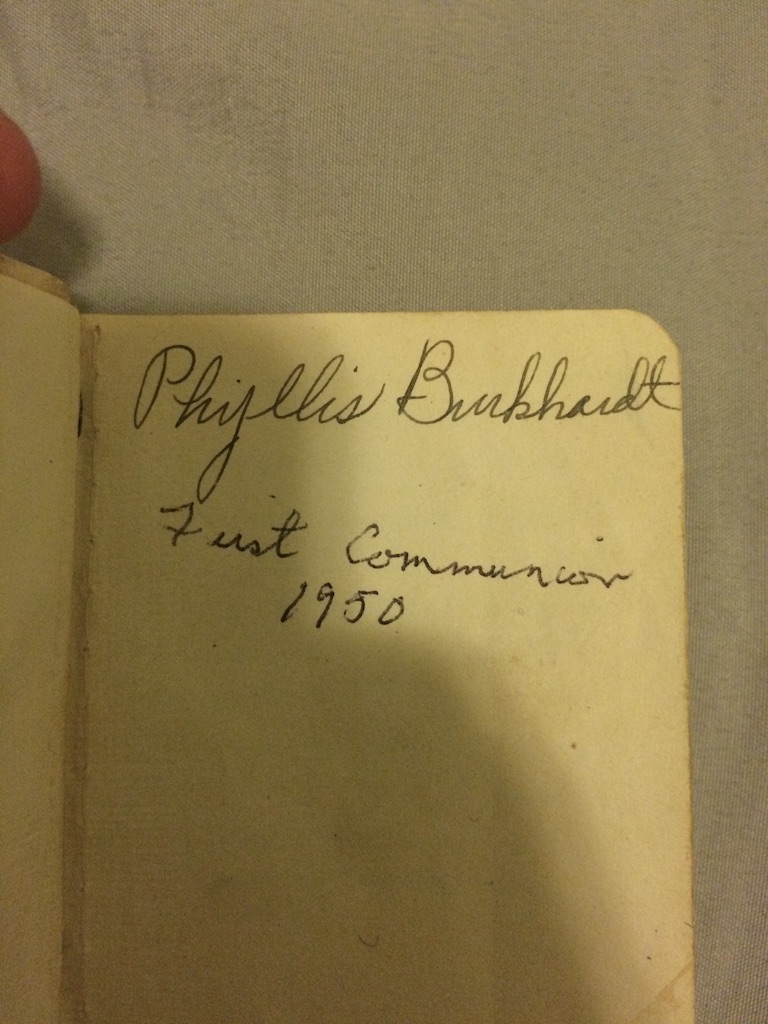 Phyllis Burkhardt
First Communion
1950